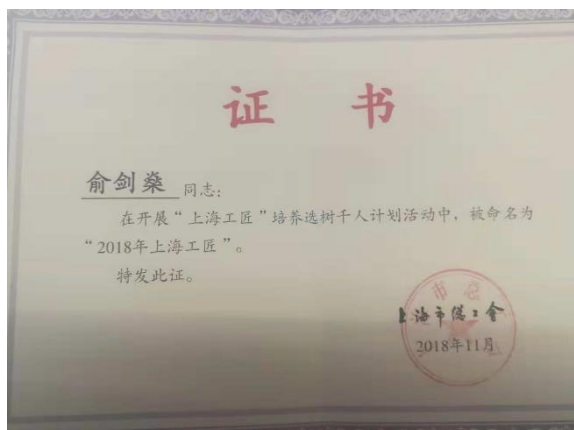 证 书
俞剑燊 同志：
在开展“上海工匠”培养选树千人计划活动中，被命名为
“2018年上海工匠”。
特发此证。
上海市总工会
2018年11月